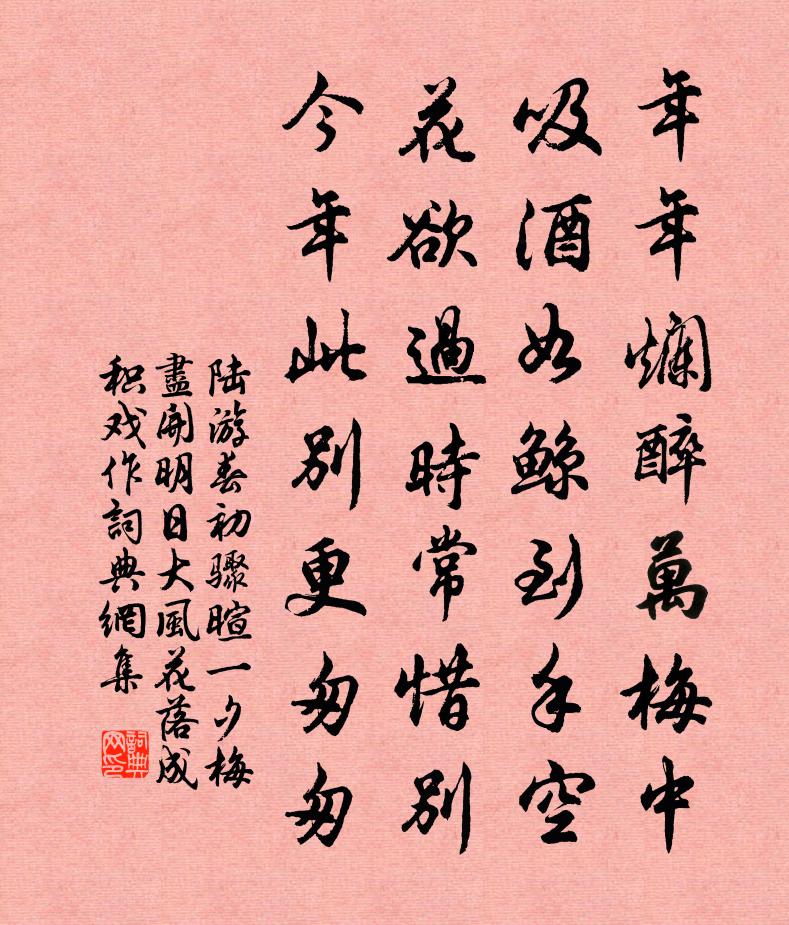 年年爛醉萬梅中
吸酒如鯨到手空
花欲過時常惜別
今年此別更匆匆
陆游春初骤暄一夕梅
盡開明日大風花落成
积戏作詞典網集
詞典
网印